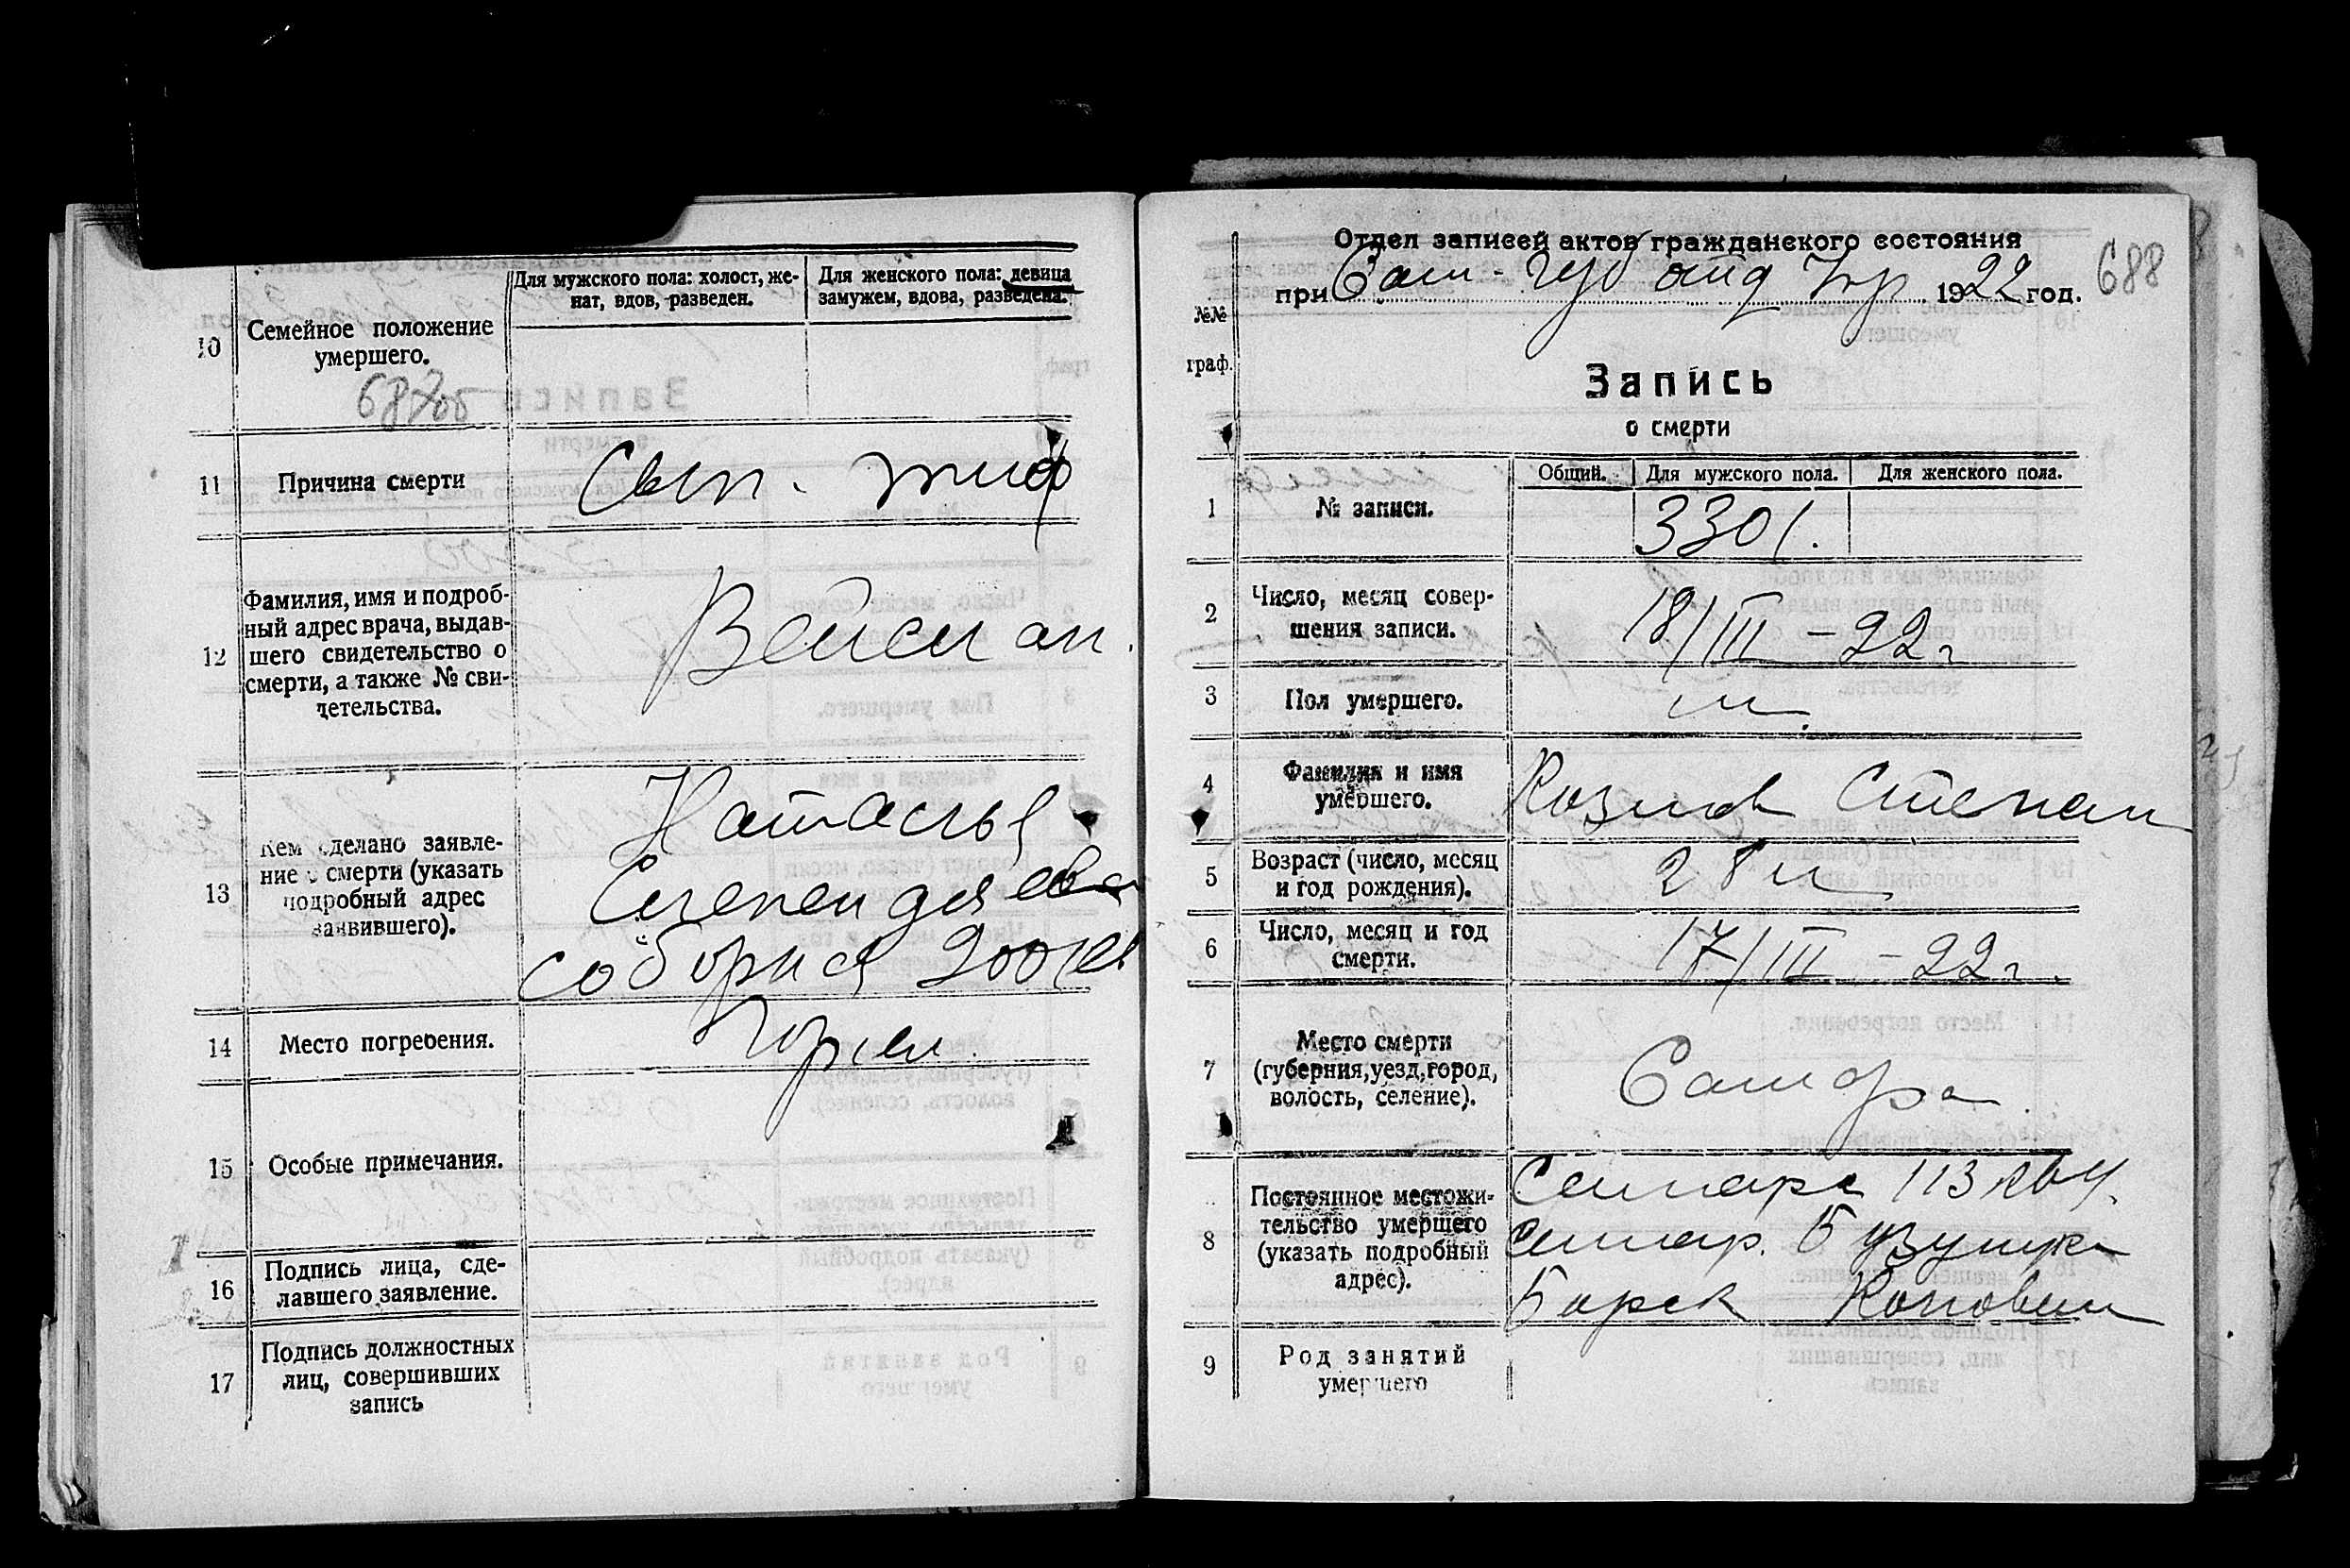 10
Семейное положение
умершего.
Для мужского пола: холост, же-
нат, вдов, разведен.
Для женского пола: девица
замужем, вдова, разведена.
687об
11
Причина смерти
Сып. тиф
12
Фамилия, имя и подроб-
ный адрес врача, выдав-
шего свидетельство о
смерти, а также № сви-
детельства.
Вейсман.
13
Кем сделано заявле-
ние о смерти (указать
подробный адрес
заявившего).
Наталья
Соборная 200
14
Место погребения.
15
Особые примечания.
16
Подпись лица, сде-
лавшего заявление.
17
Подпись должностных
лиц, совершивших
запись
Отдел записей актов гражданского состояния
при Сам. Губ отд Упр 1922 год.
688
№№
граф.
Запись
о смерти
Общий.
Для мужского пола.
Для женского пола.
1
№ записи.
3301.
2
Число, месяц совер-
шения записи.
18/III – 22 г
3
Пол умершего.
м.
4
Фамилия и имя
умершего.
Козлов Степан
5
Возраст (число, месяц
и год рождения).
28 л
6
Число, месяц и год
смерти.
17/III – 22 г.
7
Место смерти
(губерния, уезд, город,
волость, селение).
Самара
8
Постоянное местожи-
тельство умершего
(указать подробный
адрес).
Самара 113 кв
Самар. Бузулук
Борск
9
Род занятий
умершего